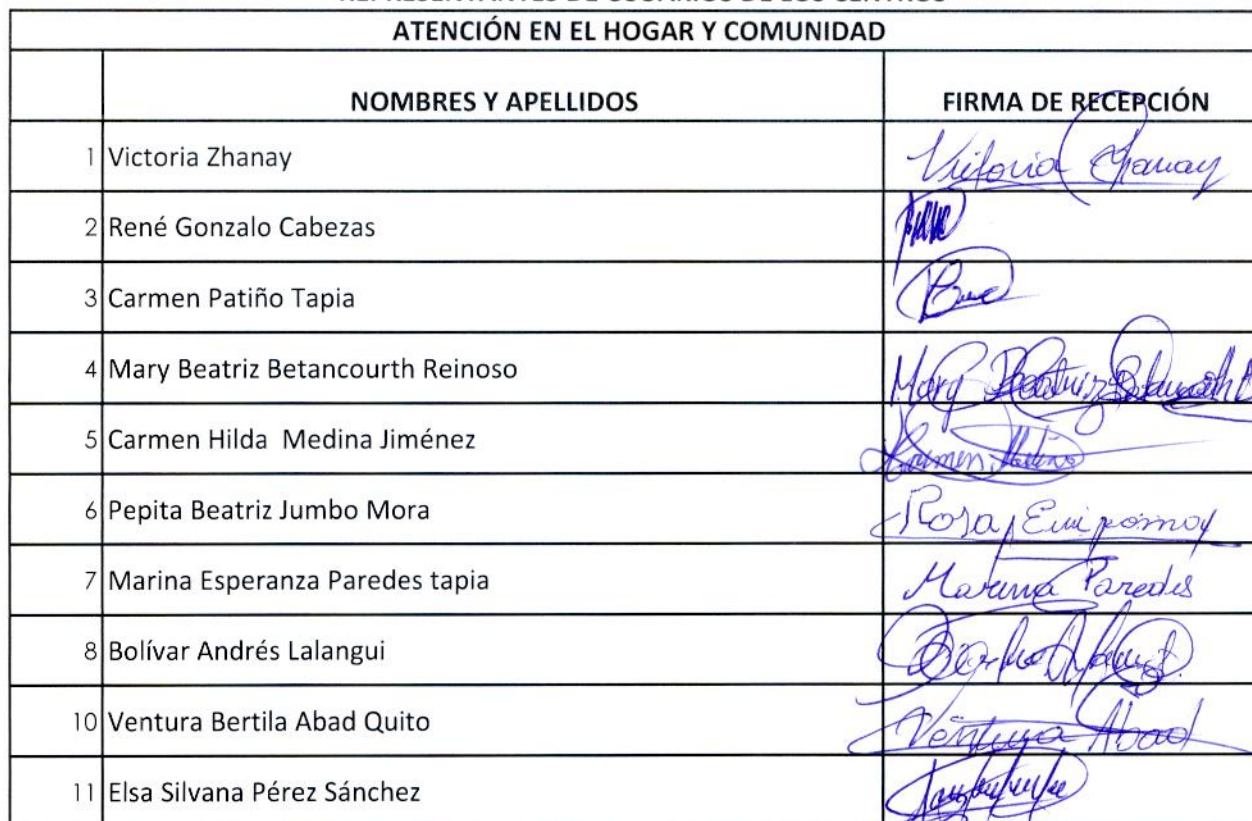 REPRESENTANTES DE USUARIOS DE LOS CENTROS
ATENCIÓN EN EL HOGAR Y COMUNIDAD
NOMBRES Y APELLIDOS FIRMA DE RECEPCIÓN
1 Victoria Zhanay Victoria Zhanay
2 René Gonzalo Cabezas
3 Carmen Patiño Tapia
4 Mary Beatriz Betancourth Reinoso Mary Beatriz
5 Carmen Hilda Medina Jiménez Carmen Medina
6 Pepita Beatriz Jumbo Mora Rosa
7 Marina Esperanza Paredes tapia Marina Paredes
8 Bolívar Andrés Lalangui
10 Ventura Bertila Abad Quito Ventura Abad
11 Elsa Silvana Pérez Sánchez